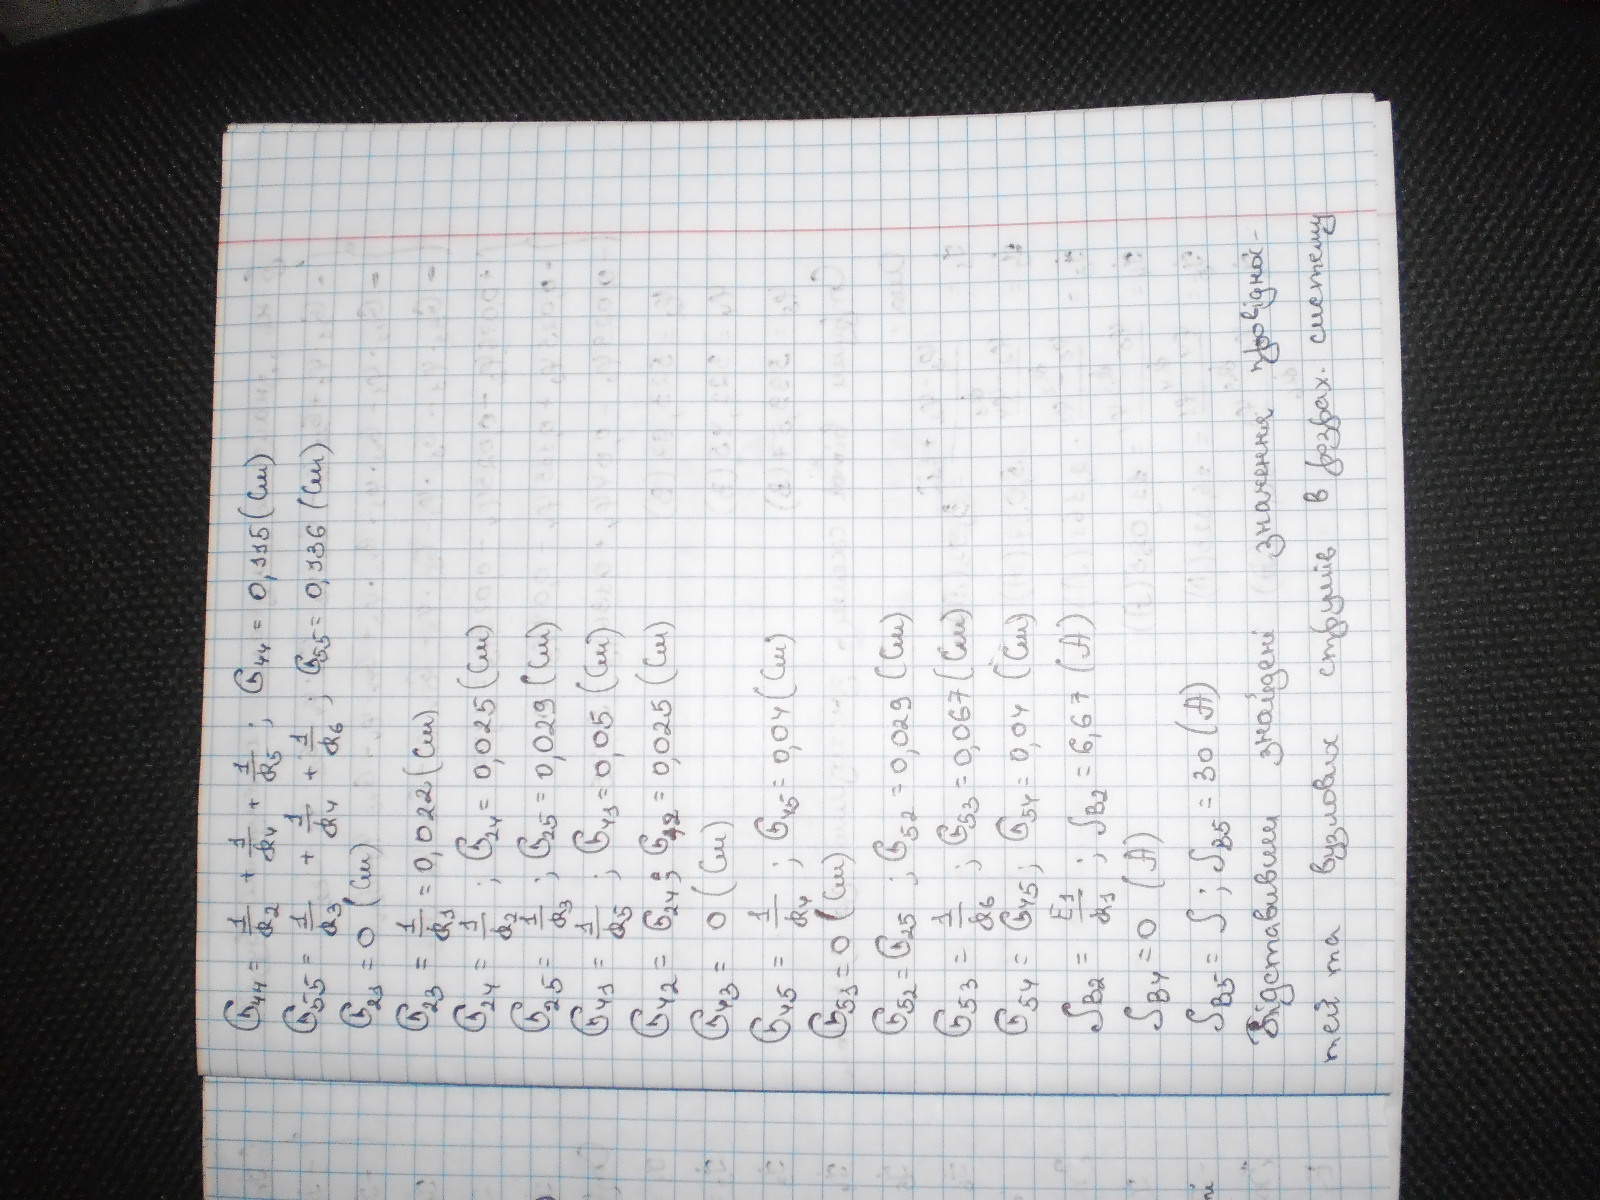 G44 = 1/R2 + 1/R4 + 1/R5 ; G44 = 0,115 (См)
G55 = 1/R3 + 1/R4 + 1/R6 ; G55 = 0,136 (См)
G21 = 0 (См)
G23 = 1/R1 = 0,022 (См)
G24 = 1/R2 ; G24 = 0,025 (См)
G25 = 1/R3 ; G25 = 0,029 (См)
G41 = 1/R5 ; G41 = 0,05 (См)
G42 = G24 ; G42 = 0,025 (См)
G43 = 0 (См)
G45 = 1/R4 ; G45 = 0,04 (См)
G51 = 0 (См)
G52 = G25 ; G52 = 0,029 (См)
G53 = 1/R6 ; G53 = 0,067 (См)
G54 = G45 ; G54 = 0,04 (См)
JB2 = E1/R1 ; JB2 = 6,67 (А)
JB4 = 0 (А)
JB5 = J ; JB5 = 30 (А)
Підставивши знайдені значення провіднос-
тей та вузлових струмів в розрах. систему